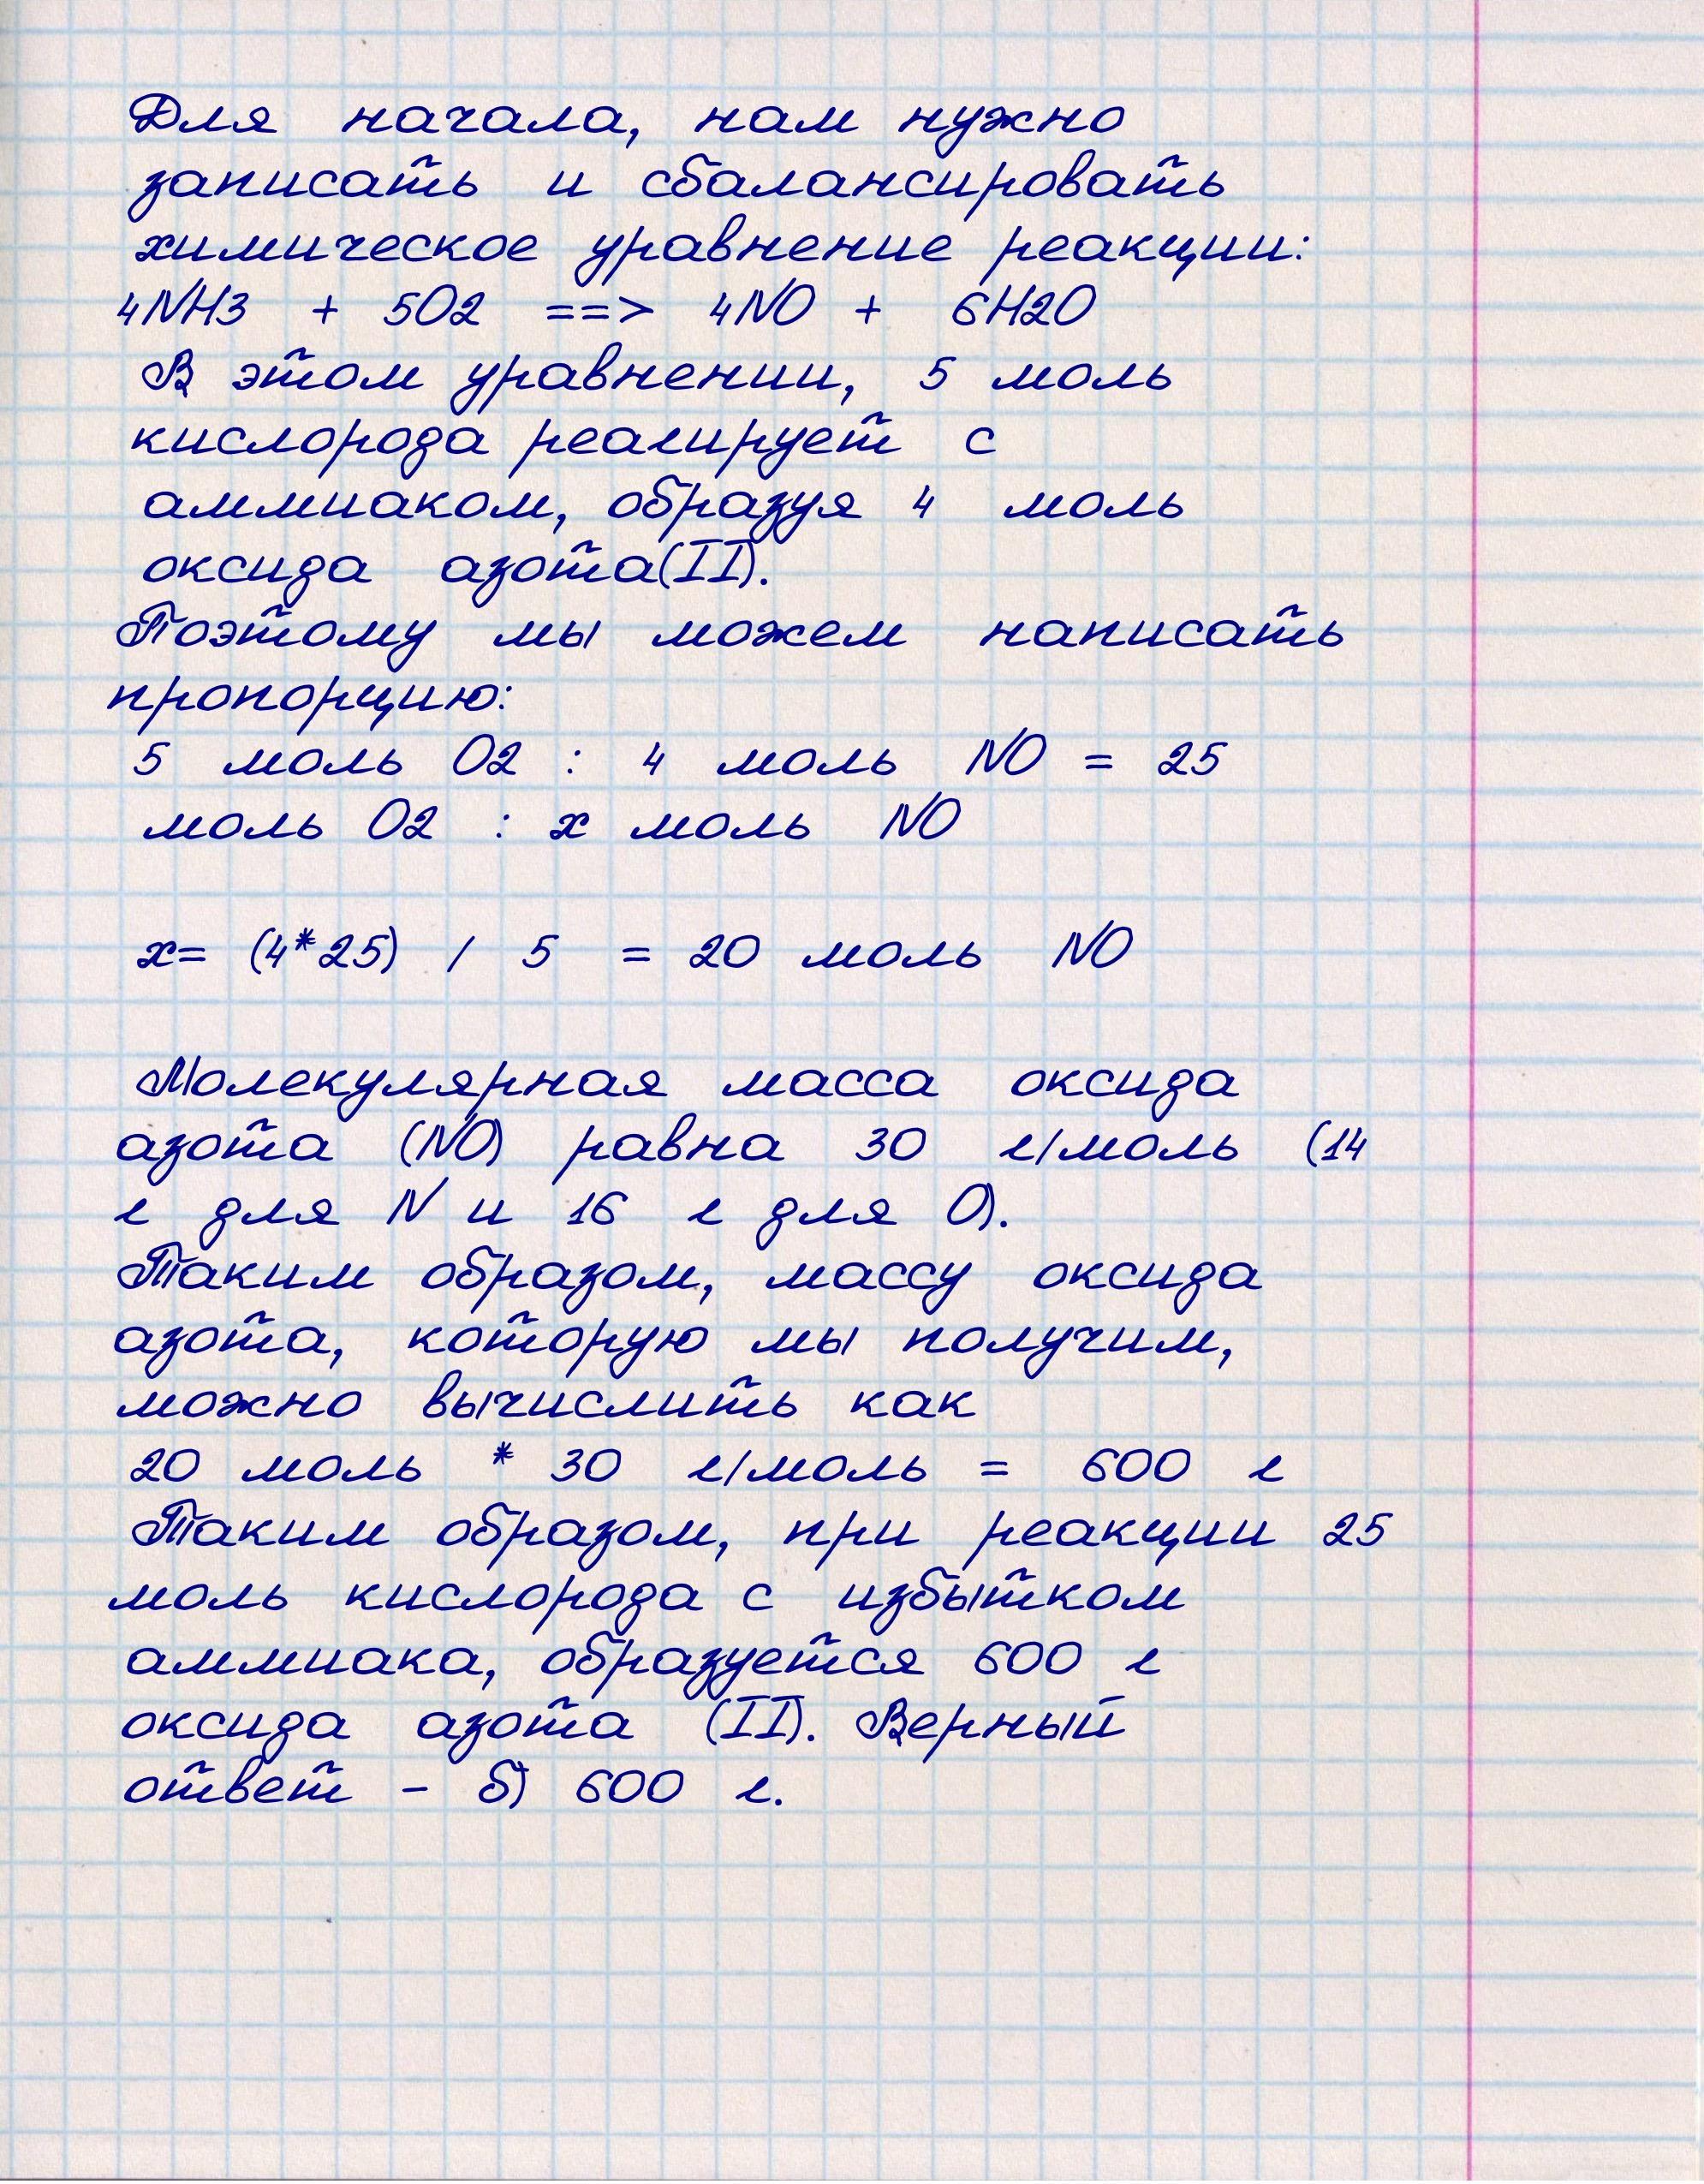 Для начала, нам нужно
записать и сбалансировать
химическое уравнение реакции:
4NH3 + 5O2 ==> 4NO + 6H2O
В этом уравнении, 5 моль
кислорода реагирует с
аммиаком, образуя 4 моль
оксида азота(II).
Поэтому мы можем написать
пропорцию:
5 моль O2 : 4 моль NO = 25
моль O2 : x моль NO
x= (4*25) / 5 = 20 моль NO
Молекулярная масса оксида
азота (NO) равна 30 г/моль (14
г для N и 16 г для O).
Таким образом, массу оксида
азота, которую мы получим,
можно вычислить как
20 моль * 30 г/моль = 600 г
Таким образом, при реакции 25
моль кислорода с избытком
аммиака, образуется 600 г
оксида азота (II). Верный
ответ - б) 600 г.